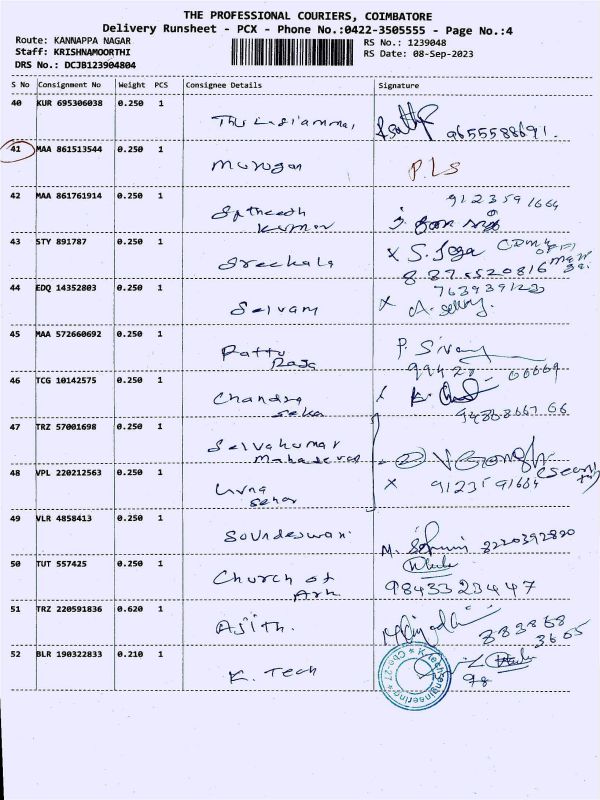 THE PROFESSIONAL COURIERS, COIMBATORE
Delivery Runsheet - PCX - Phone No.:0422-3505555 - Page No.:4
Route: KANNAPPA NAGAR
RS No.: 1239048
Staff: KRISHNAMOORTHI
RS Date: 08-Sep-2023
DRS No.: DCJB123904804
S No Consignment No Weight PCS Consignee Details Signature
40 KUR 695306038 0.250 1
9655588691.
41 MAA 861513544 0.250 1
Murugan P.LS
42 MAA 861761914 0.250 1
9123591664
Satheesh
Kumar
43 STY 891787 0.250 1
Sreekala x S. Joga
44 EDQ 14352803 0.250 1
Selvam x A. Selvy.
45 MAA 572660692 0.250 1
Pattu P. Siva
Raja
46 TCG 10142575 0.250 1
Chandra x
Seka
47 TRZ 57001698 0.250 1
Selvakumar
Mahadevan
48 VPL 220212563 0.250 1
x 9123591664
49 VLR 4858413 0.250 1
Soundeswari 8220392820
50 TUT 557425 0.250 1
Church of
Ark 9843323447
51 TRZ 220591836 0.620 1
Ajith. 883868
3665
52 BLR 190322833 0.210 1
K. Tech 98